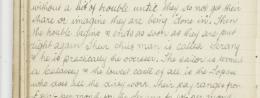 without a lot of trouble until they do not get their
share or imagine they are being "done in". Then
the trouble begins & ends as soon as they are put
right again. Their chief man is called Serang
& he is practically the overseer. The
a & the lowest caste of all is the Topas
who does all the dirty work. Their pay ranges from